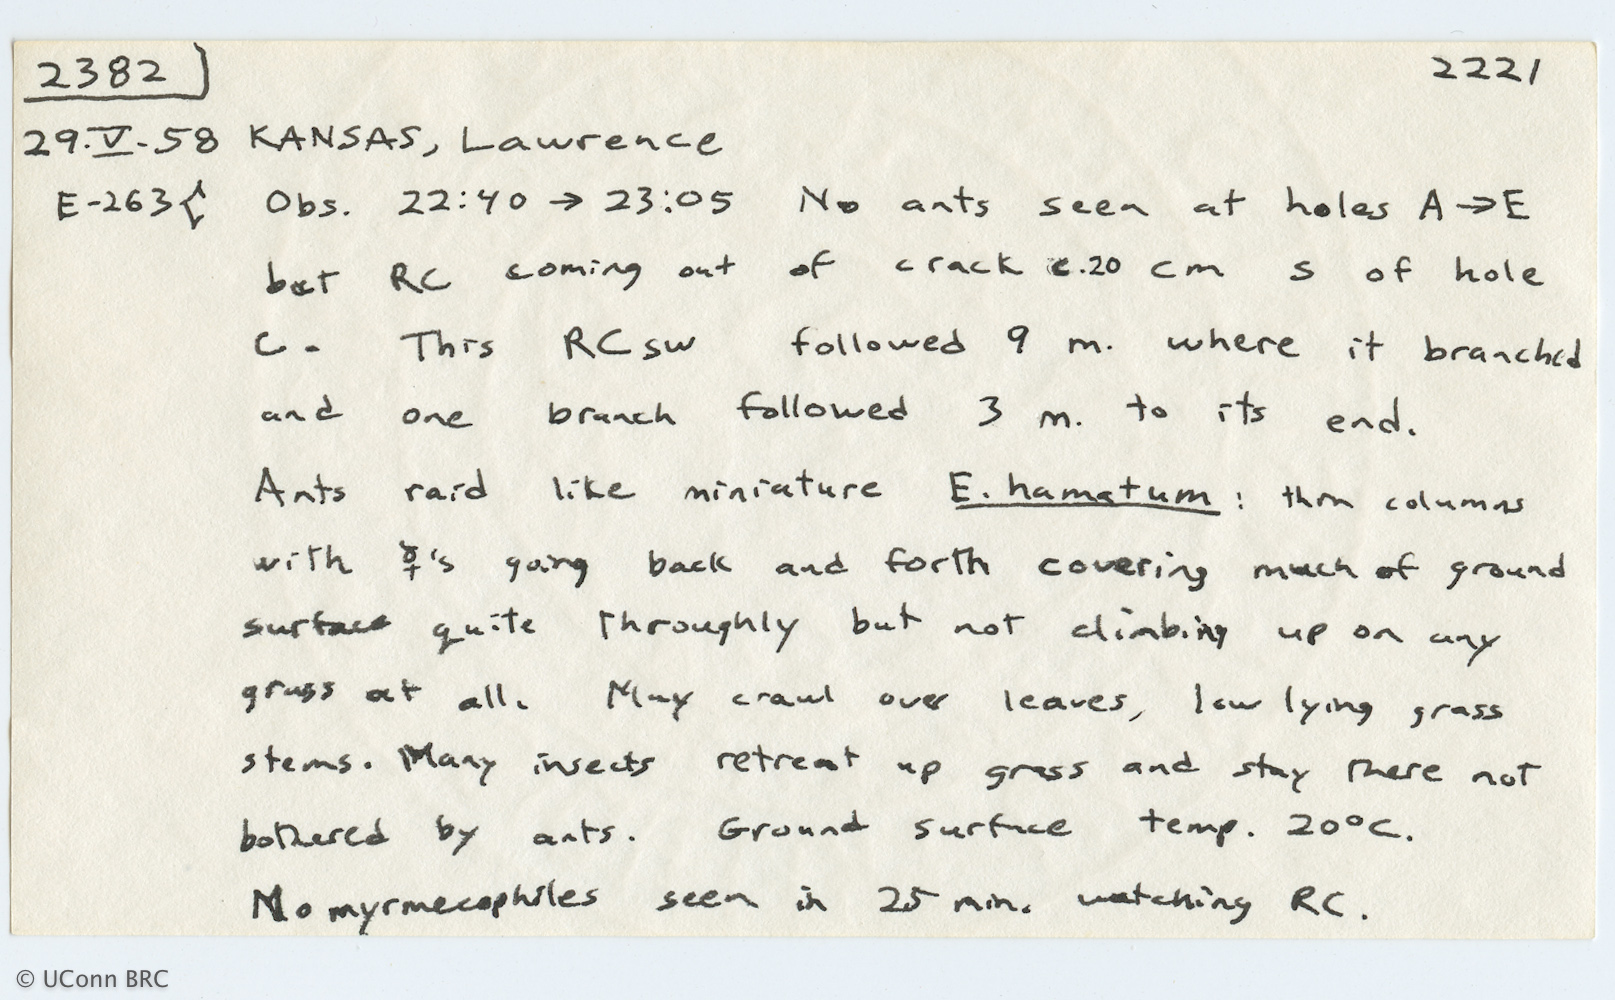 2382 2221
29.V.58 KANSAS, Lawrence
E-263{ Obs. 22:40 → 23:05 No ants seen at holes A→E
but RC coming out of crack c.20 cm S of hole
C. This RC SW followed 9 m. where it branched
and one branch followed 3 m. to its end.
Ants raid like miniature E. hamatum: thin columns
with ☿'s going back and forth covering much of ground
surface quite throughly but not climbing up on any
grass at all. May crawl over leaves, low lying grass
stems. Many insects retreat up grass and stay there not
bothered by ants. Ground surface temp. 20°C.
No myrmecophiles seen in 25 min. watching RC.
© UConn BRC